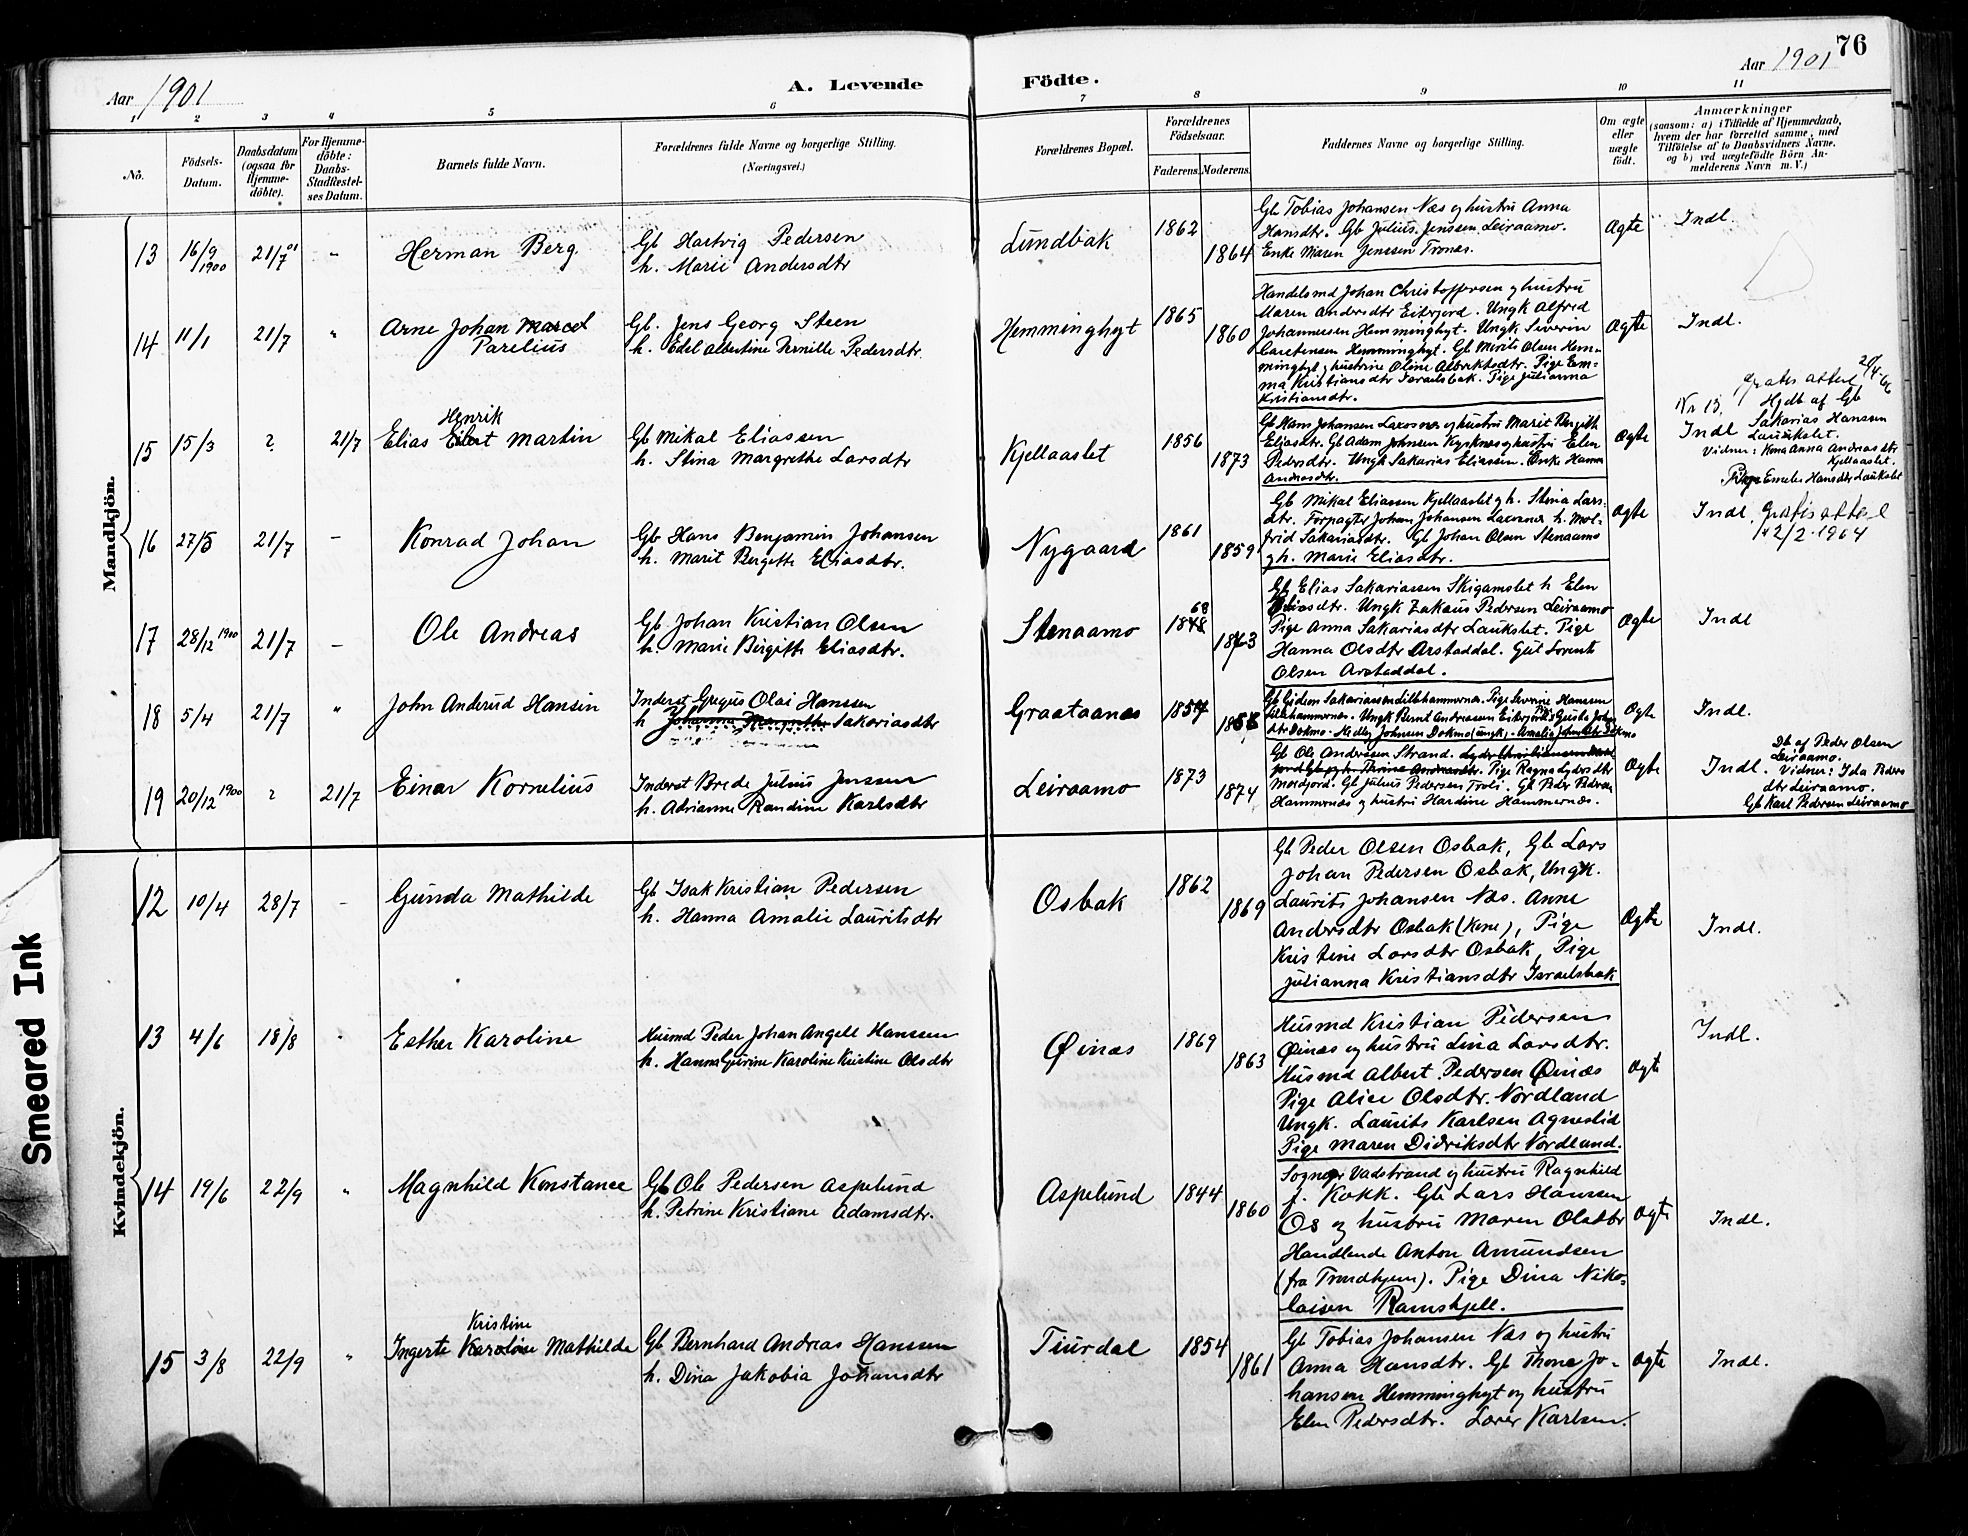 76
Aar 1901
A. Levende Födte.
Aar 1901
1 2 3 4 5 6 7 8 9 10 11
No.
Födsels-Datum.
Daabsdatum (ogsaa for Hjemme-döbte).
For Hjemme-döbte: Daabs-Stadfæstel-ses Datum.
Barnets fulde Navn.
Forældrenes fulde Navne og borgerlige Stilling. (Næringsvei.)
Forældrenes Bopæl.
Forældrenes Födselsaar.
Faderens. Moderens.
Faddernes Navne og borgerlige Stilling.
Om ægte eller uægte födt.
Anmærkninger
(saasom: a) i Tilfælde af Hjemmedaab, hvem der har forrettet samme, med Tilföielse af to Daabsvidners Navne. og b) ved uægtefödte Börn An-melderens Navn m. V.)
Mandkjön.
13 16/9 1900 21/7 01 " Herman Berg.
Gb Hartvig Pedersen
h. Marie Andersdtr
Lundbak 1862 1864
Gb Tobias Johansen Næs og hustru Anna
Hansdtr. Gb Julius Jenssen Leiraamo.
Enke Maren Jenssen Tronæs.
Ægte Indl.
14 11/1 21/7 " Arne Johan Marcel
Parelius
Gb. Jens Georg Steen
h. Edel Albertine Pernille Pedersdtr.
Hemminghyt 1865 1860
Handelsmd Johan Christoffersen og hustru
Maren Andersdtr Eiterjord. Ungk Alfred
Johannessen Hemminghyt. Ungk Severin
Carstensen Hemminghyt. Gb Merits Olsen Hem-
minghyt og hustrue Oline Albriktsdtr. Pige Em-
ma Kristiansdtr Israelsbak. Pige Julianna
Kristiansdtr.
Ægte Indl.
15 15/3 ? 21/7 Elias Henrik Martin
Gb Mikal Eliassen
h. Stina Margrethe Larsdtr
Kjellaaslet 1856 1873
Gb Hans Johansen Laxosnes og hustru Marit Bergith
Eliasdtr. Gb Adam Johnsen og hustru Elen
Pedersdtr. Ungk Sakarias Eliassen. Enke Hanna
Andreasdtr.
Ægte
Gratis attest 20/4
Nr 13. Hjdb af Gb
Sakarias Hanssen
Indl Laukslet.
Vidner: Kona Anna Andreasdtr
Kjellaaslet.
Pige Hansdtr Laukslet
16 27/5 21/7 – Konrad Johan
Gb Hans Benjamin Johansen
h. Marit Bergette Eliasdtr.
Nygaard 1861 1859
Gb Mikal Eliassen Kjellaaslet og h. Stina Lars-
dtr. Forpagter Johan Johansen Laxosnes h. Mal-
frid Sakariasdtr. Gb Johan Olsen Stenaamo
og h. Marie Eliasdtr.
Ægte Indl. Gratis attest
12/2-1964
17 28/12 1900 21/7 – Ole Andreas
Gb. Johan Kristian Olsen
h. Marie Birgitte Eliasdtr.
Stenaamo 68 1848 1863
Gb Elias Sakariassen Skigamslet h Elen
Eliasdtr. Ungk Zakæus Pedersen Leiraamo
Pige Anna Sakariasdtr Laukslet. Pige
Hanna Olsdtr Arstaddal. Gut Lorents
Olsen Arstaddal.
Ægte Indl
18 5/4 21/7 " John Anderud Hansen
Inderst Gregus Olai Hanssen
h Johanna Margrethe Sakariasdtr
Graataanæs 1857 1858
Gb Gideon Sakariassen Lillehammernes. Pige Severine Hanssen
Lillehammernes. Ungk Bernt Andreassen Eiterjord. Pige Gusta Johns
dtr Dokmo. Hedley Johnsen Dokmo (ungk). Amalie Johnsdtr Dokmo
Ægte Indl.
19 20/12 1900 ? 21/7 Einar Kornelius
Inderst Brede Julius Jenssen
h. Adrianne Randine Karlsdtr
Leiraamo 1873 1874
Gb Ole Anderssen Strand. Lyder Christiansen
Pige Ragna Lydersdtr
Mordjord. Gb Julius Pedersen Troli. Gb Peder Pedersen
Hammernes og hustru Hardine Hammernæs.
Ægte Indl.
Db af Peder Olsen
Leiraamo.
Vidner: Ida Peders
dtr Leiraamo.
Gb Karl Pedersen Leiraamo
Kvindekjön.
12 10/4 28/7 – Gunda Mathilde
Gb Isak Kristian Pedersen
h. Hanna Amalie Lauritsdtr
Osbak 1862 1869
Gb Peder Olsen Osbak, Gb Lars
Johan Pedersen Osbak, Ungk.
Laurits Johansen Næs. Anne
Andersdtr Osbak (Kone), Pige
Kristine Larsdtr Osbak, Pige
Julianna Kristiansdtr Israelsbak
Ægte Indl.
13 4/6 18/8 " Esther Karoline
Husmd Peder Johan Angell Hanssen
h. Hanna Gurine Karoline Kristine Olsdtr
Øinæs 1869 1863
Husmd Kristian Pedersen
Øinæs og hustru Lina Larsdtr.
Husmd Albert Pedersen Øinæs
Pige Alice Olsdtr. Nordland
Ungk. Laurits Karlsen Agneslid
Pige Maren Didriksdtr Nordland.
Ægte Indl.
14 19/6 22/9 " Magnhild Konstance
Gb Ole Pedersen Aspelund
h. Petrine Kristiane Adamsdtr.
Aspelund 1844 1860
Sognepr Vadstrand og hustru Ragnhild
f. Kokk. Gb Lars Hanssen
Os og hustru Maren Olsdtr
Handlende Anton Amundsen
(fra Trondhjem). Pige Dina Niko-
laisen Ramskjell.
Ægte Indl.
15 3/8 22/9 " Ingerte Karoline Kristine Mathilde
Gb Bernhard Andreas Hanssen
h. Dina Jakobia Johansdtr
Tiurdal 1854 1861
Gb Tobias Johansen Næs og hustru
Anna Hansdtr. Gb Thone Jo-
hansen Hemminghyt og hustru
Elen Pedersdtr. Lærer Karlsen.
Ægte Indl.
Smeared Ink